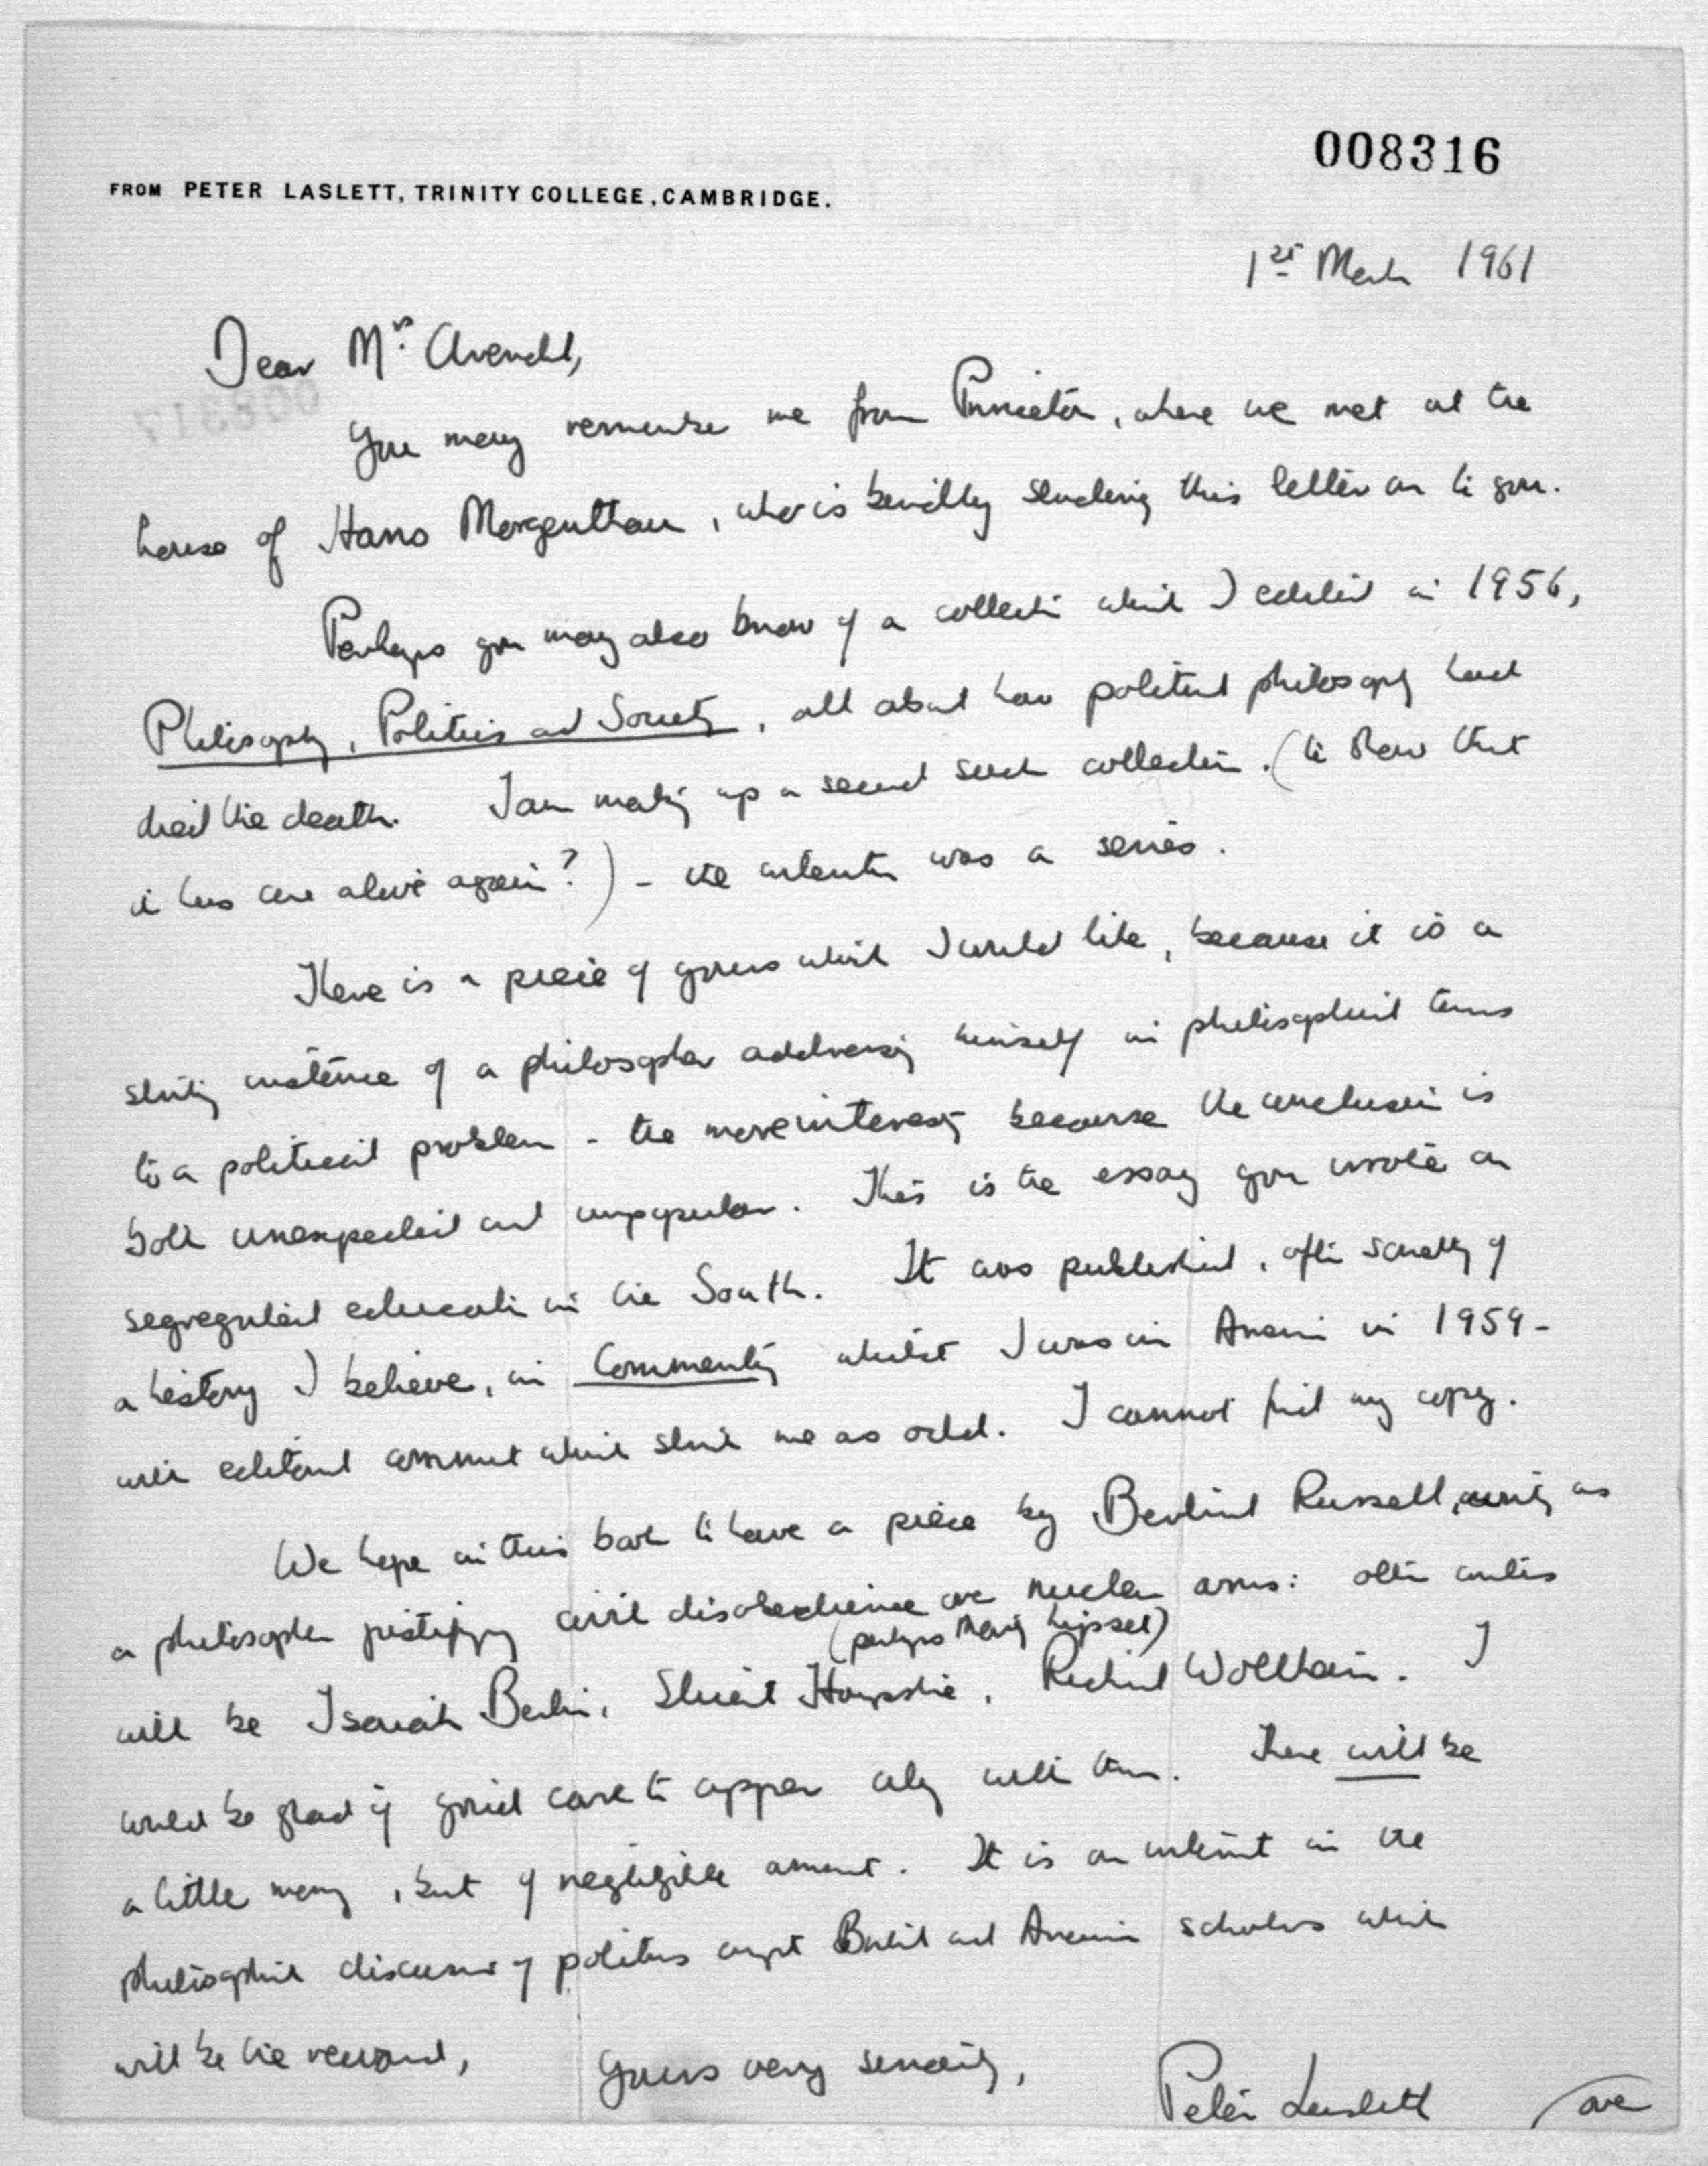 008316
FROM PETER LASLETT, TRINITY COLLEGE, CAMBRIDGE.
1st March 1961
Dear Mrs. Arendt,
You may remember me from Princeton, where we met at the
house of Hans Morgenthau, who is kindly sending this letter on to you.
Perhaps you may also know of a collection which I edited in 1956,
Philosophy, Politics and Society, all about how political philosophy had
died the death. I am making up a second such collection. (to show that
it has come alive again?) - the intention was a series.
There is a piece of yours which I would like, because it is a
striking instance of a philosopher addressing himself in philosophical terms
to a political problem - the more interesting because the conclusion is
both unexpected and unpopular. This is the essay you wrote on
segregated education in the South. It was published, after something of
a history I believe, in Commentary whilst I was in America in 1959 -
with editorial comment which struck me as odd. I cannot find my copy.
We hope in this book to have a piece by Bertrand Russell, writing as
a philosopher justifying civil disobedience over nuclear arms: other writers
(perhaps Marty Lipset)
will be Isaiah Berlin, Stuart Hampshire, Richard Wollheim. I
would be glad if you'd care to appear along with them. There will be
a little money, but of negligible amount. It is an interest in the
philosophical discussion of politics amongst British and American scholars which
will be the reward,
Yours very sincerely,
Peter Laslett
over